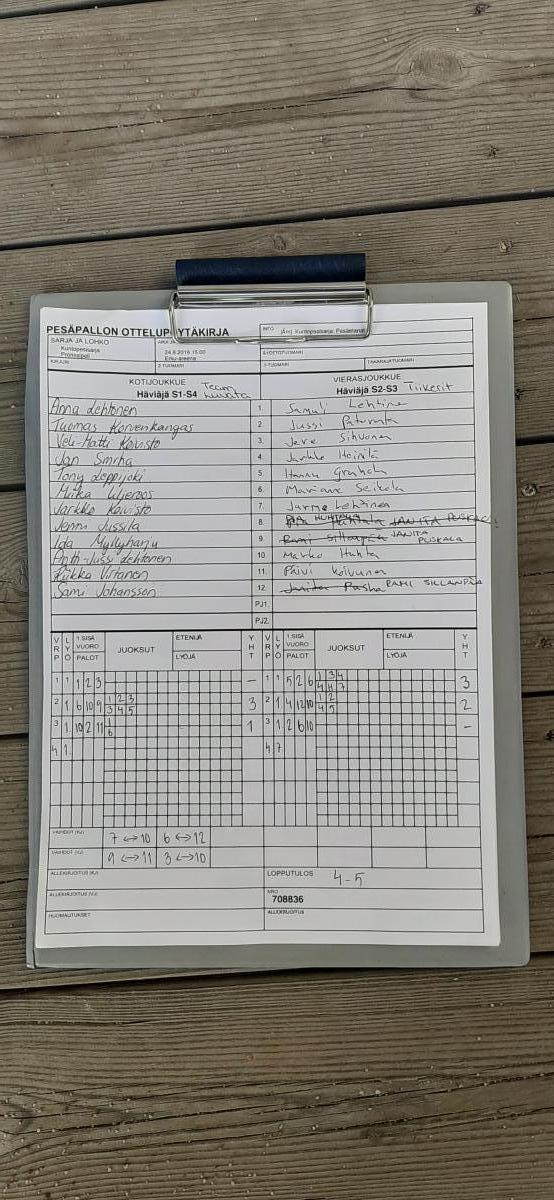 PESÄPALLON OTTELUPÖYTÄKIRJA
INFO
(Äm) Kuntopesisarja: Pesämanat
SARJA JA LOHKO
Kuntopesisarja
AIKA JA
24.8.2016 15:00
Erku-areena
SYÖTTÖTUOMARI
KIRJURI
2-TUOMARI
3-TUOMARI
TAKARAJATUOMARI
KOTIJOUKKUE Team
Häviäjä S1-S4
VIERASJOUKKUE
Häviäjä S2-S3 Tiikerit
Anna Lehtonen
1. Samuli Lehtinen
Tuomas Korvenkangas
2. Jussi
Veli-Matti Koivisto
3. Jere Sihvonen
Jan Smrha
4. Jarkko Heinilä
Tony Leppijoki
5. Hannu
Miika Liljeroos
6.
Jarkko Koivisto
7. Jarmo Lehtinen
Jenni Jussila
8. HUHTALA JANITA PUSKALA
Ida Myllyharju
9. Rami Sillanpää JANITA PUSKALA
Antti-Jussi Lehtonen
10. Marko Huhta
Riikka Virtanen
11. Päivi Koivunen
Sami Johansson
12. Janita RAMI SILLANPÄÄ
PJ1.
PJ2.
VRP LYÖ 1.SISÄ VUORO PALOT JUOKSUT ETENIJÄ LYÖJÄ YHT VRP LYÖ 1.SISÄ VUORO PALOT JUOKSUT ETENIJÄ LYÖJÄ YHT
1 1 1 2 3 – 1 1 5 2 6 1 3 4 3
4 4 7
2 1 6 10 9 1 2 3 3 2 1 4 12 10 1 2 2
3 4 5 4 5
3 1 10 2 11 1 1 3 1 2 6 10 –
6
4 1 4 7
VAIHDOT (KJ) 7 ↔ 10 6 ↔ 12
VAIHDOT (VJ) 9 ↔ 11 3 ↔ 10
ALLEKIRJOITUS (KJ)
LOPPUTULOS 4-5
ALLEKIRJOITUS (VJ)
NRO
708836
HUOMAUTUKSET
ALLEKIRJOITUS